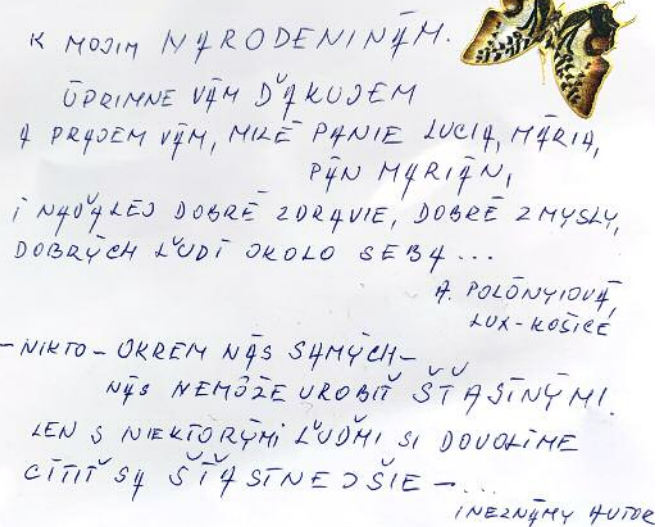 K MOJIM NARODENINÁM.
ÚPRIMNE VÁM ĎAKUJEM
A PRAJEM VÁM, MILÉ PANIE LUCIA, MÁRIA,
PÁN MARIÁN,
I NAĎALEJ DOBRÉ ZDRAVIE, DOBRÉ ZMYSLY,
DOBRÝCH ĽUDÍ OKOLO SEBA ...
A. POLÓNYIOVÁ,
LUX-KOŠICE
- NIKTO - OKREM NÁS SAMÝCH -
NÁS NEMÔŽE UROBIŤ ŠŤASTNÝMI.
LEN S NIEKTORÝMI ĽUĎMI SI DOVOLÍME
CÍTIŤ SA ŠŤASTNEJŠIE - ...
(NEZNÁMY AUTOR